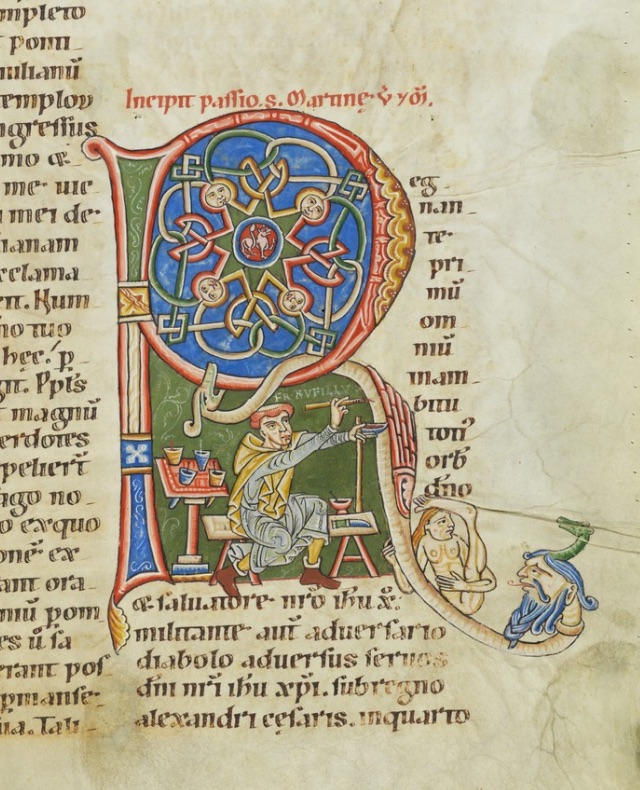 mpleto
t pomi-
mlianū
templou
ngressus
mo &
me· uic
u mei de·
lianam
cclama
Num
no tuo
hęc. p̄
git. Ppls
t magnū
cerdotes
ago no-
o exquo
onē ex
ant ora-
mū pom
es ū sa
erant pos
ꝑmanse-
ia. Tali-
Incipit passio. s. Martinę. v̄ & m̄.
R eg-
nan-
te·
pri-
mū
om-
niū
inam-
bitu
toti'
orb
dño
FR RVFILLVS
& saluatore· nr̄o ih̄u x̄.
militante· aut aduersario
diabolo aduersus seruos
dn̄i nr̄i ih̄u xp̄i. sub regno
alexandri cęsaris. inquarto